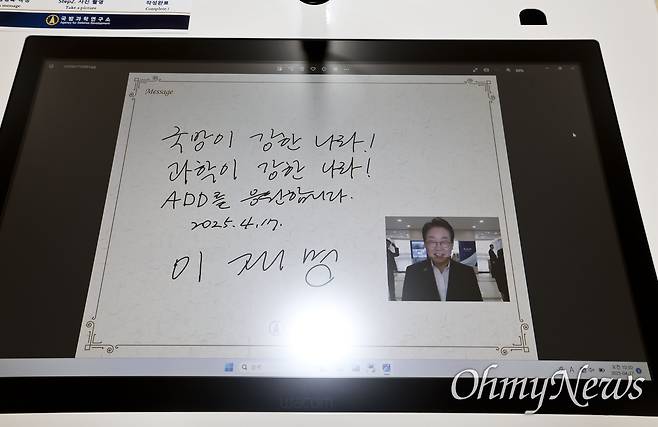 message
Step2. 사진 촬영
Take a picture
작성완료
Complete !
국방과학연구소
Agency for Defense Development
Message
국방이 강한 나라!
과학이 강한 나라!
ADD를 응원합니다.
2025.4.17.
이재명
wacom
OhmyNews